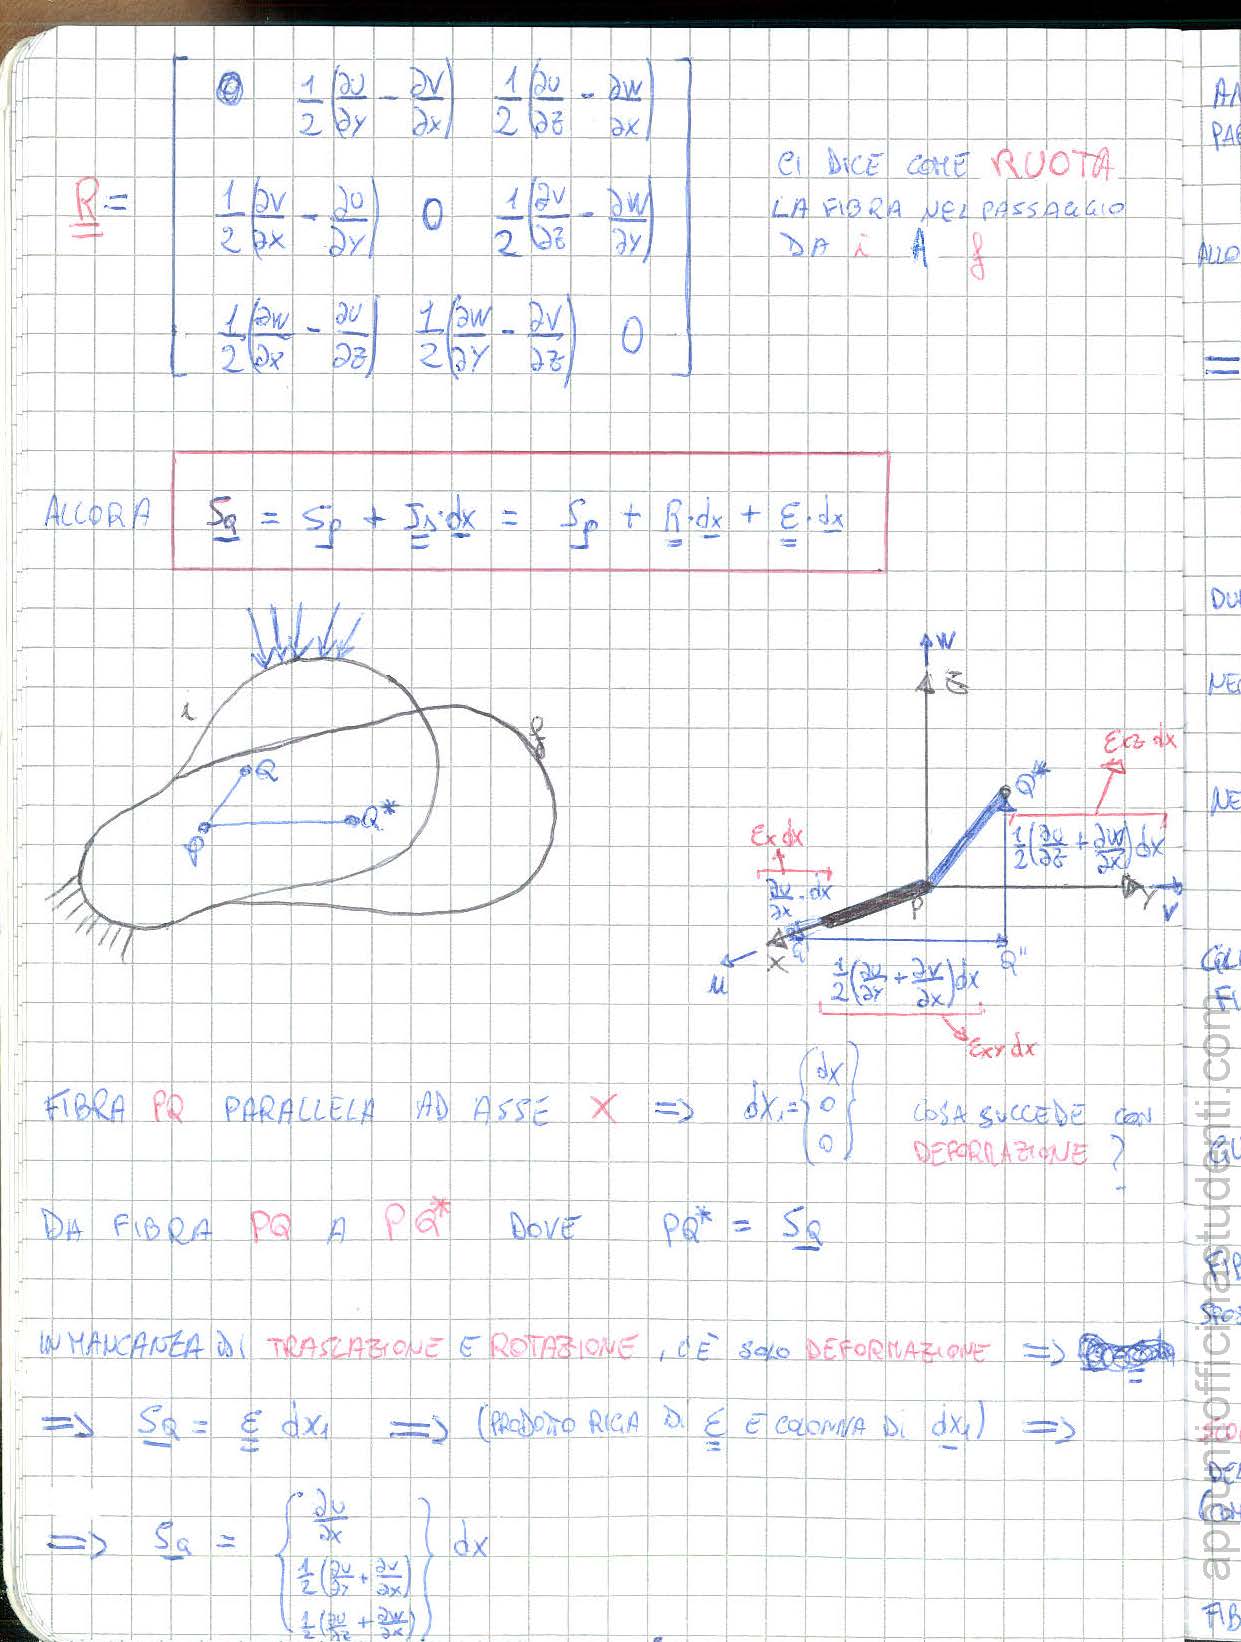 R = [ 0   1/2(∂U/∂Y - ∂V/∂X)   1/2(∂U/∂Z - ∂W/∂X)
1/2(∂V/∂X - ∂U/∂Y)   0   1/2(∂V/∂Z - ∂W/∂Y)
1/2(∂W/∂X - ∂U/∂Z)   1/2(∂W/∂Y - ∂V/∂Z)   0 ]
CI DICE COME RUOTA
LA FIBRA NEL PASSAGGIO
DA i A f
ALLORA   SQ = Sp + Js·dx = Sp + R·dx + ε·dx
i
f
Q
P
Q*
W
Z
εxz dx
Q*
1/2(∂U/∂Z + ∂W/∂X)dx
εx dx
∂U/∂X · dx
P
Y
V
X
Q'
Q''
u
1/2(∂U/∂Y + ∂V/∂X)dx
εxy dx
FIBRA PQ PARALLELA AD ASSE X => dx₁ = {dx 0 0}   COSA SUCCEDE CON
DEFORMAZIONE ?
DA FIBRA PQ A PQ* DOVE PQ* = SQ
IN MANCANZA DI TRASLAZIONE E ROTAZIONE, C'È SOLO DEFORMAZIONE =>
=> SQ = ε dx₁ => (PRODOTTO RIGA DI ε E COLONNA DI dx₁) =>
=> SQ = { ∂U/∂X
1/2(∂U/∂Y + ∂V/∂X)
1/2(∂U/∂Z + ∂W/∂X) } dx
appuntiofficinastudenti.com